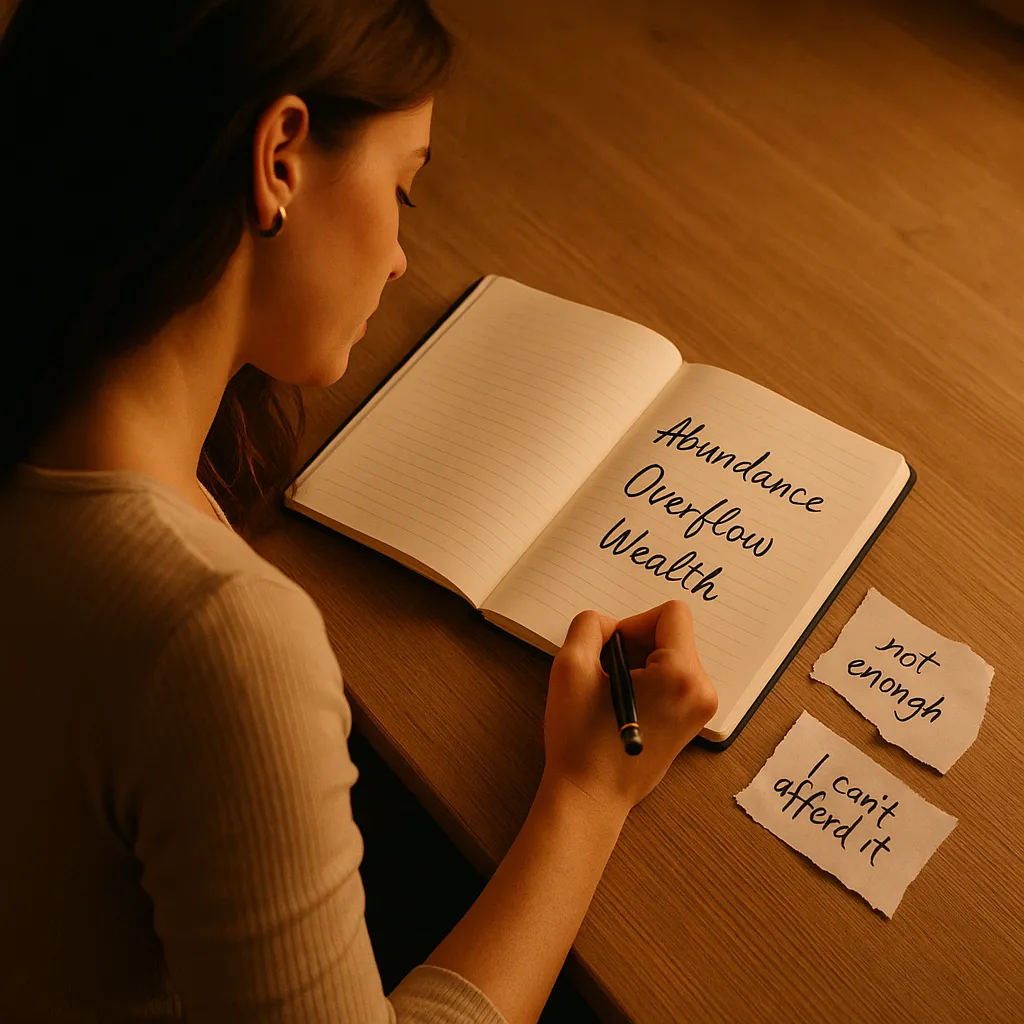 Abundance
Overflow
Wealth
not
enongh
I can't
afferd it